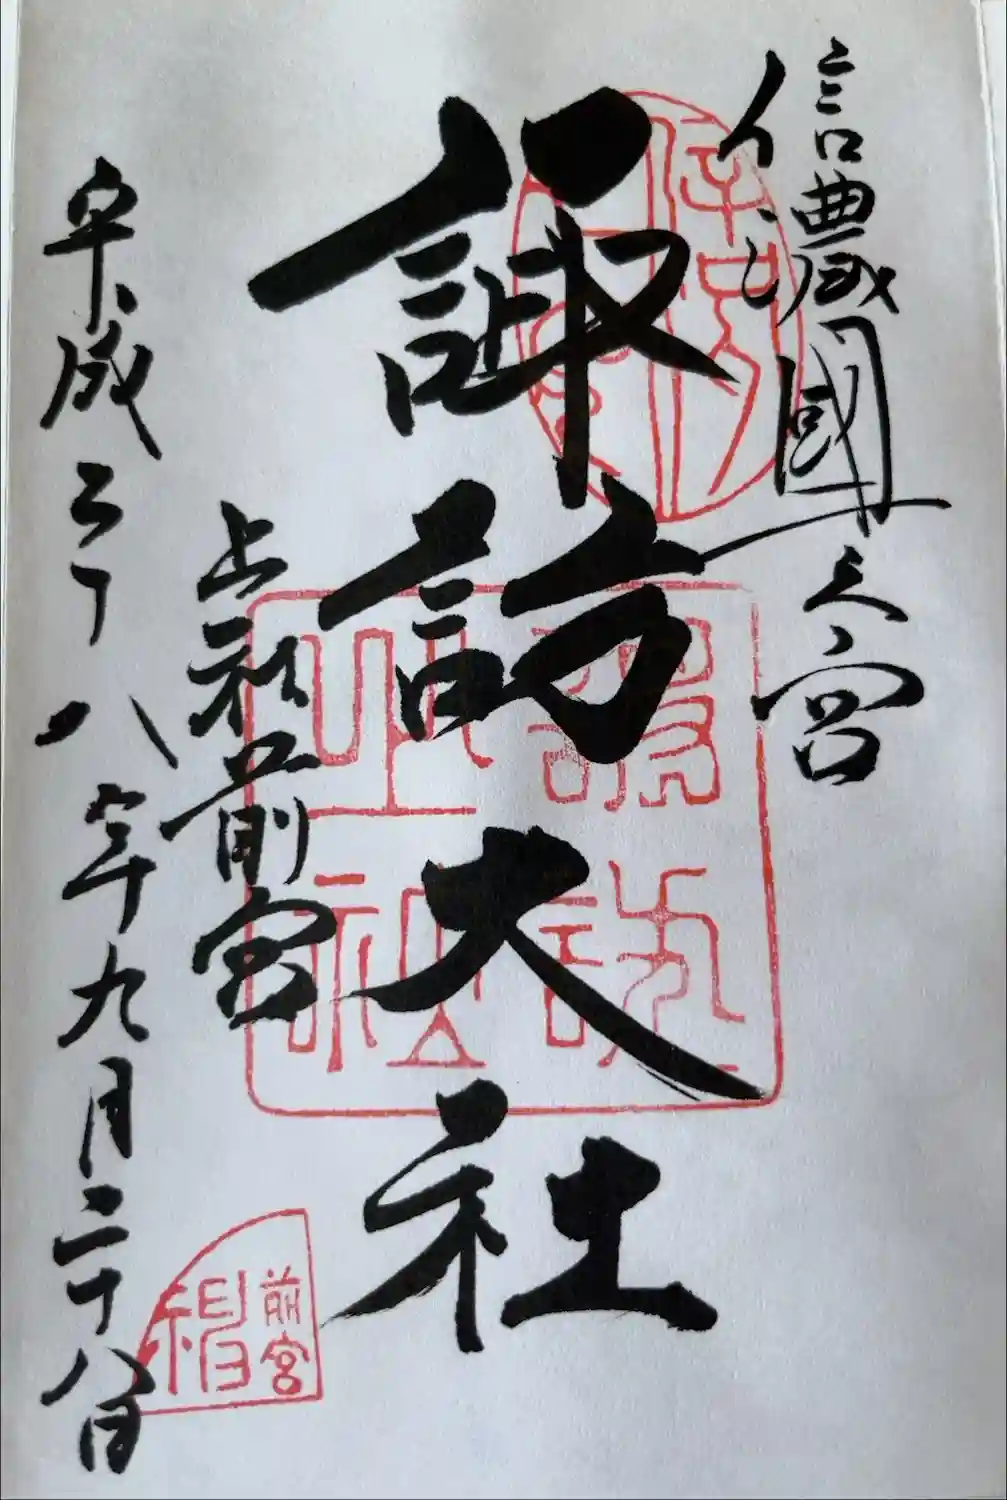 信濃國一之宮
諏訪大社
上社前宮
平成二十八年九月二十八日
諏訪
上社
前宮